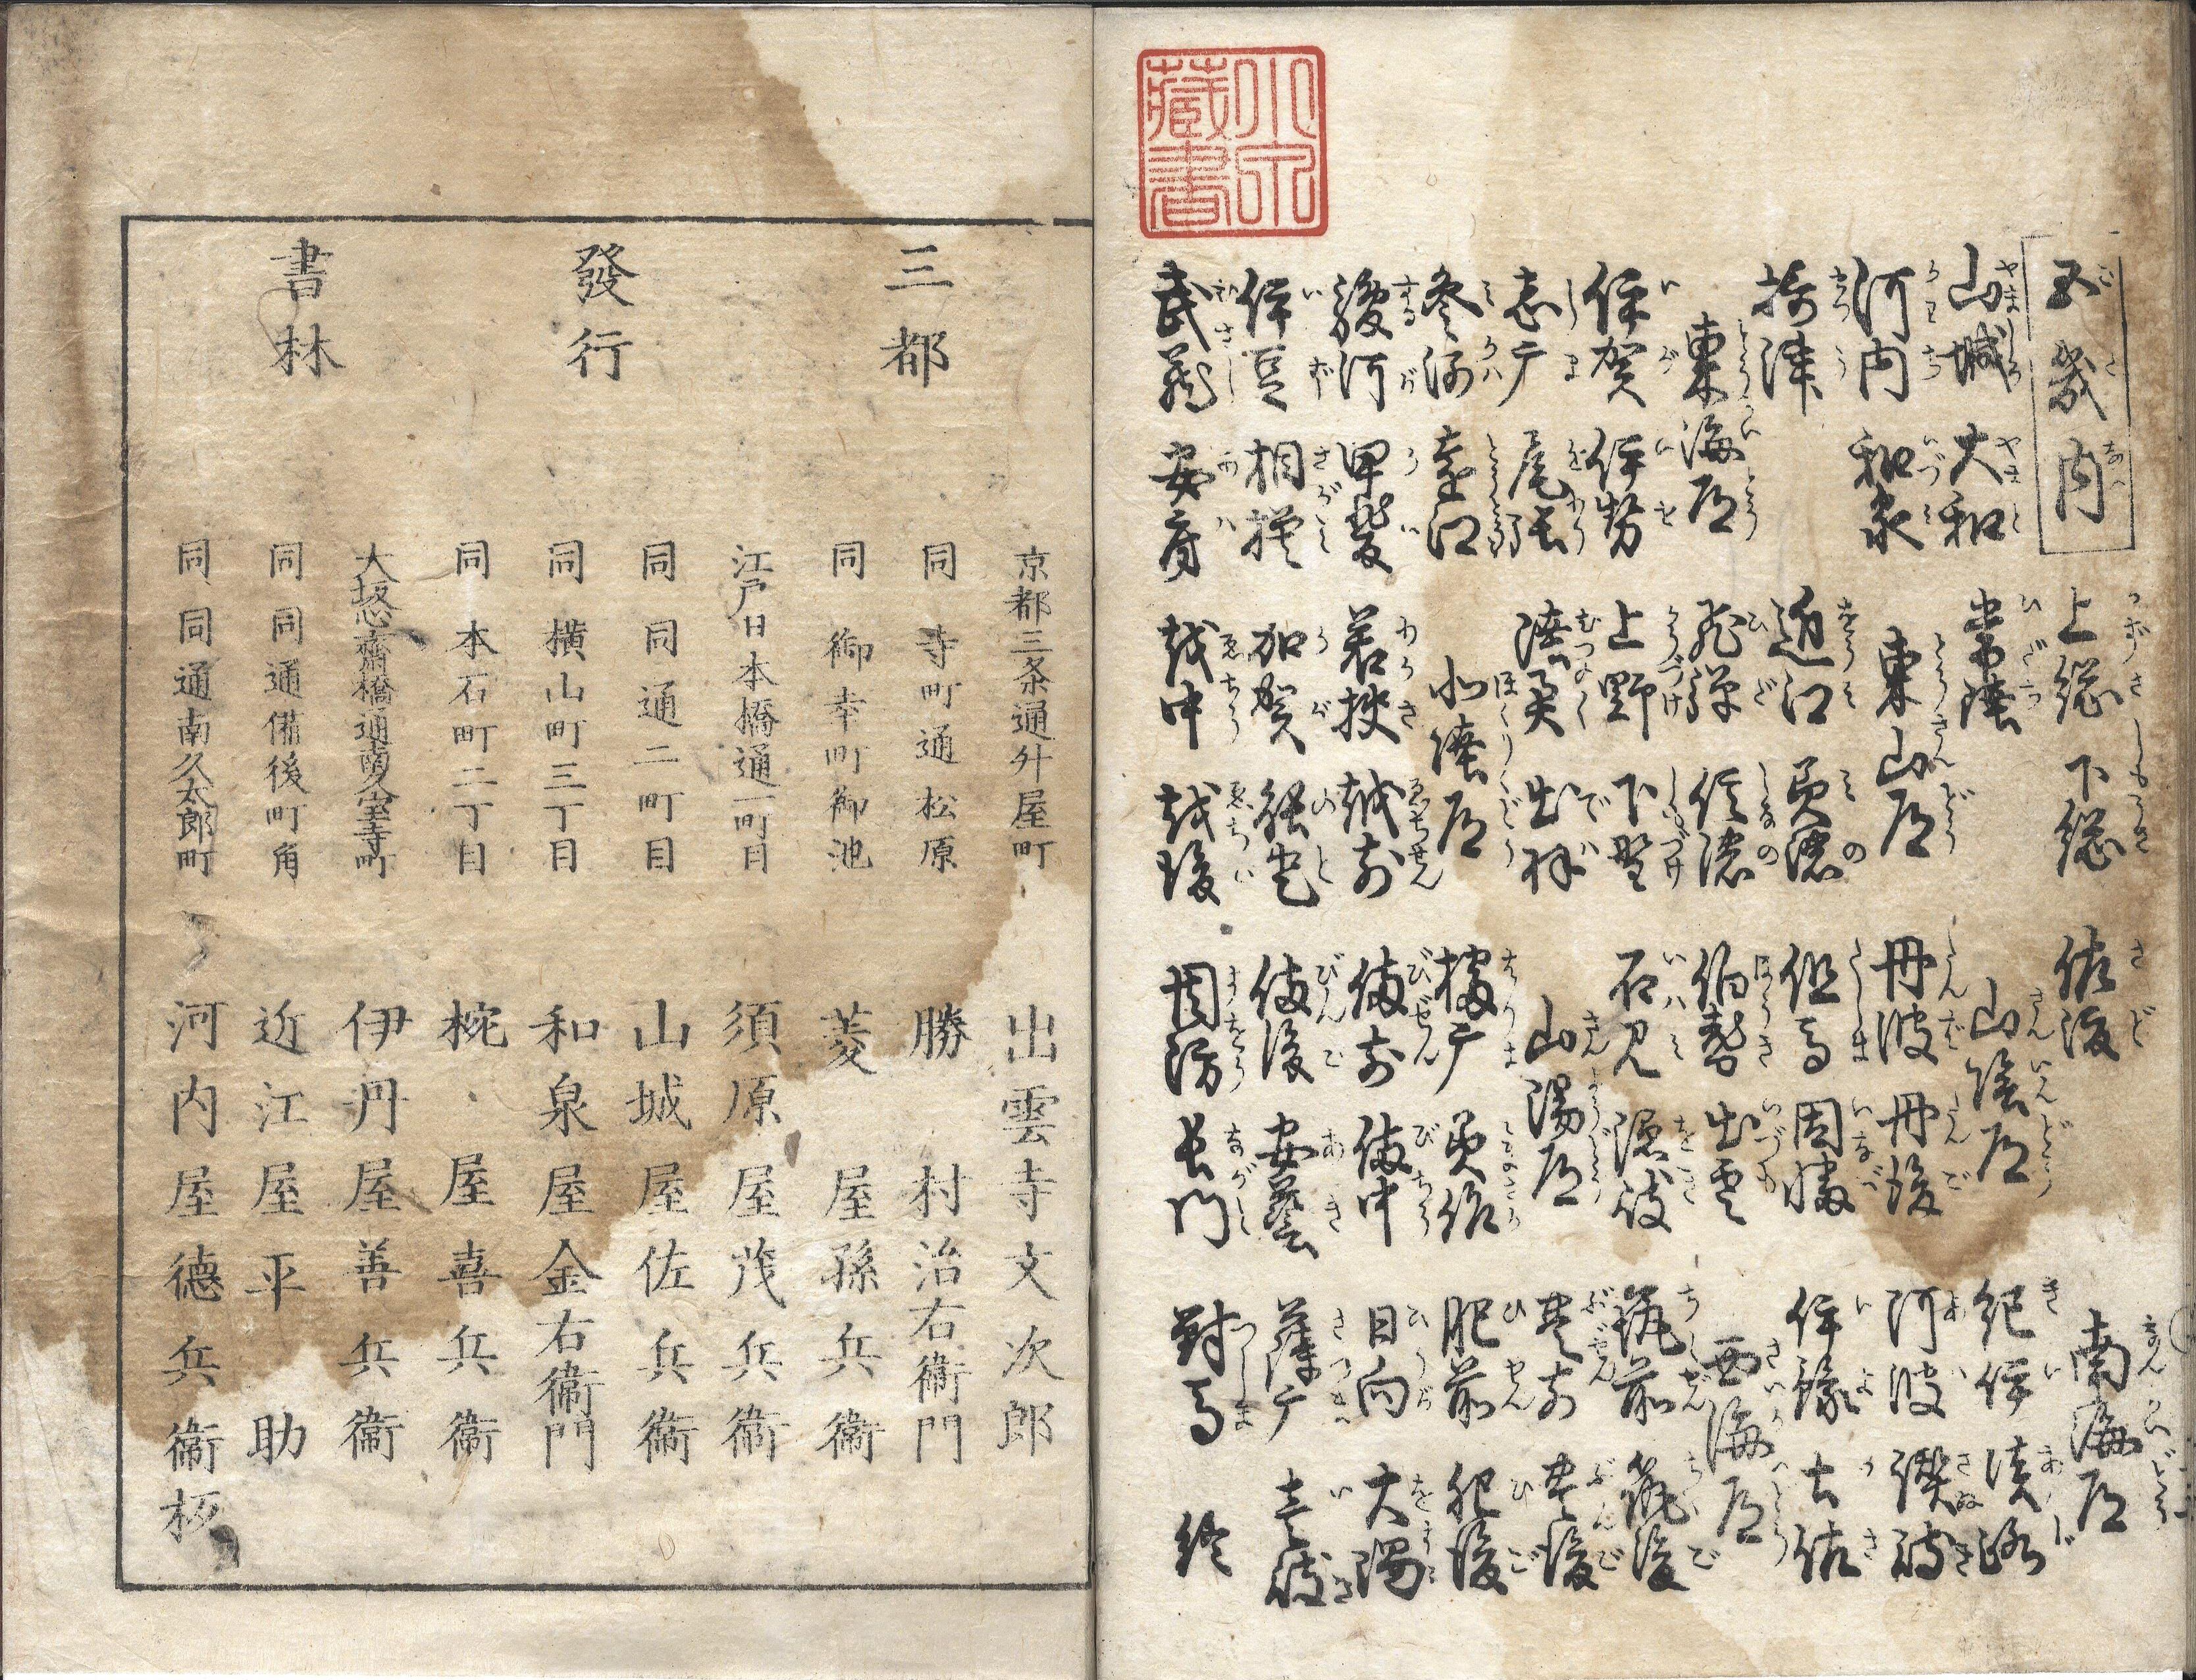 五畿内
山城 大和
河内 和泉
摂津
東海道
伊賀 伊勢
志广 尾張
参河 遠江
駿河 甲斐
伊豆 相模
武蔵 安房
上総 下総
常陸
東山道
近江 美濃
飛騨 信濃
上野 下野
陸奥 出羽
北陸道
若狭 越前
加賀 能登
越中 越後
佐渡
山陰道
丹波 丹後
但馬 因幡
伯耆 出雲
石見 隠岐
山陽道
播广 美作
備前 備中
備後 安藝
周防 長門
南海道
紀伊 淡路
阿波 讃岐
伊豫 土佐
西海道
筑前 筑後
豊前 豊後
肥前 肥後
日向 大隅
薩广 壱岐
對馬 終
藏書
三都
發行
書林
京都三条通升屋町 出雲寺文次郎
同 寺町通松原 勝村治右衛門
同 御幸町御池 菱屋孫兵衛
江戸日本橋通一町目 須原屋茂兵衛
同 同通二町目 山城屋佐兵衛
同 横山町三丁目 和泉屋金右衛門
同 本石町二丁目 椀屋喜兵衛
大坂心斎橋通南久宝寺町 伊丹屋善兵衛
同 同通備後町角 近江屋平助
同 同通南久太郎町 河内屋徳兵衛板